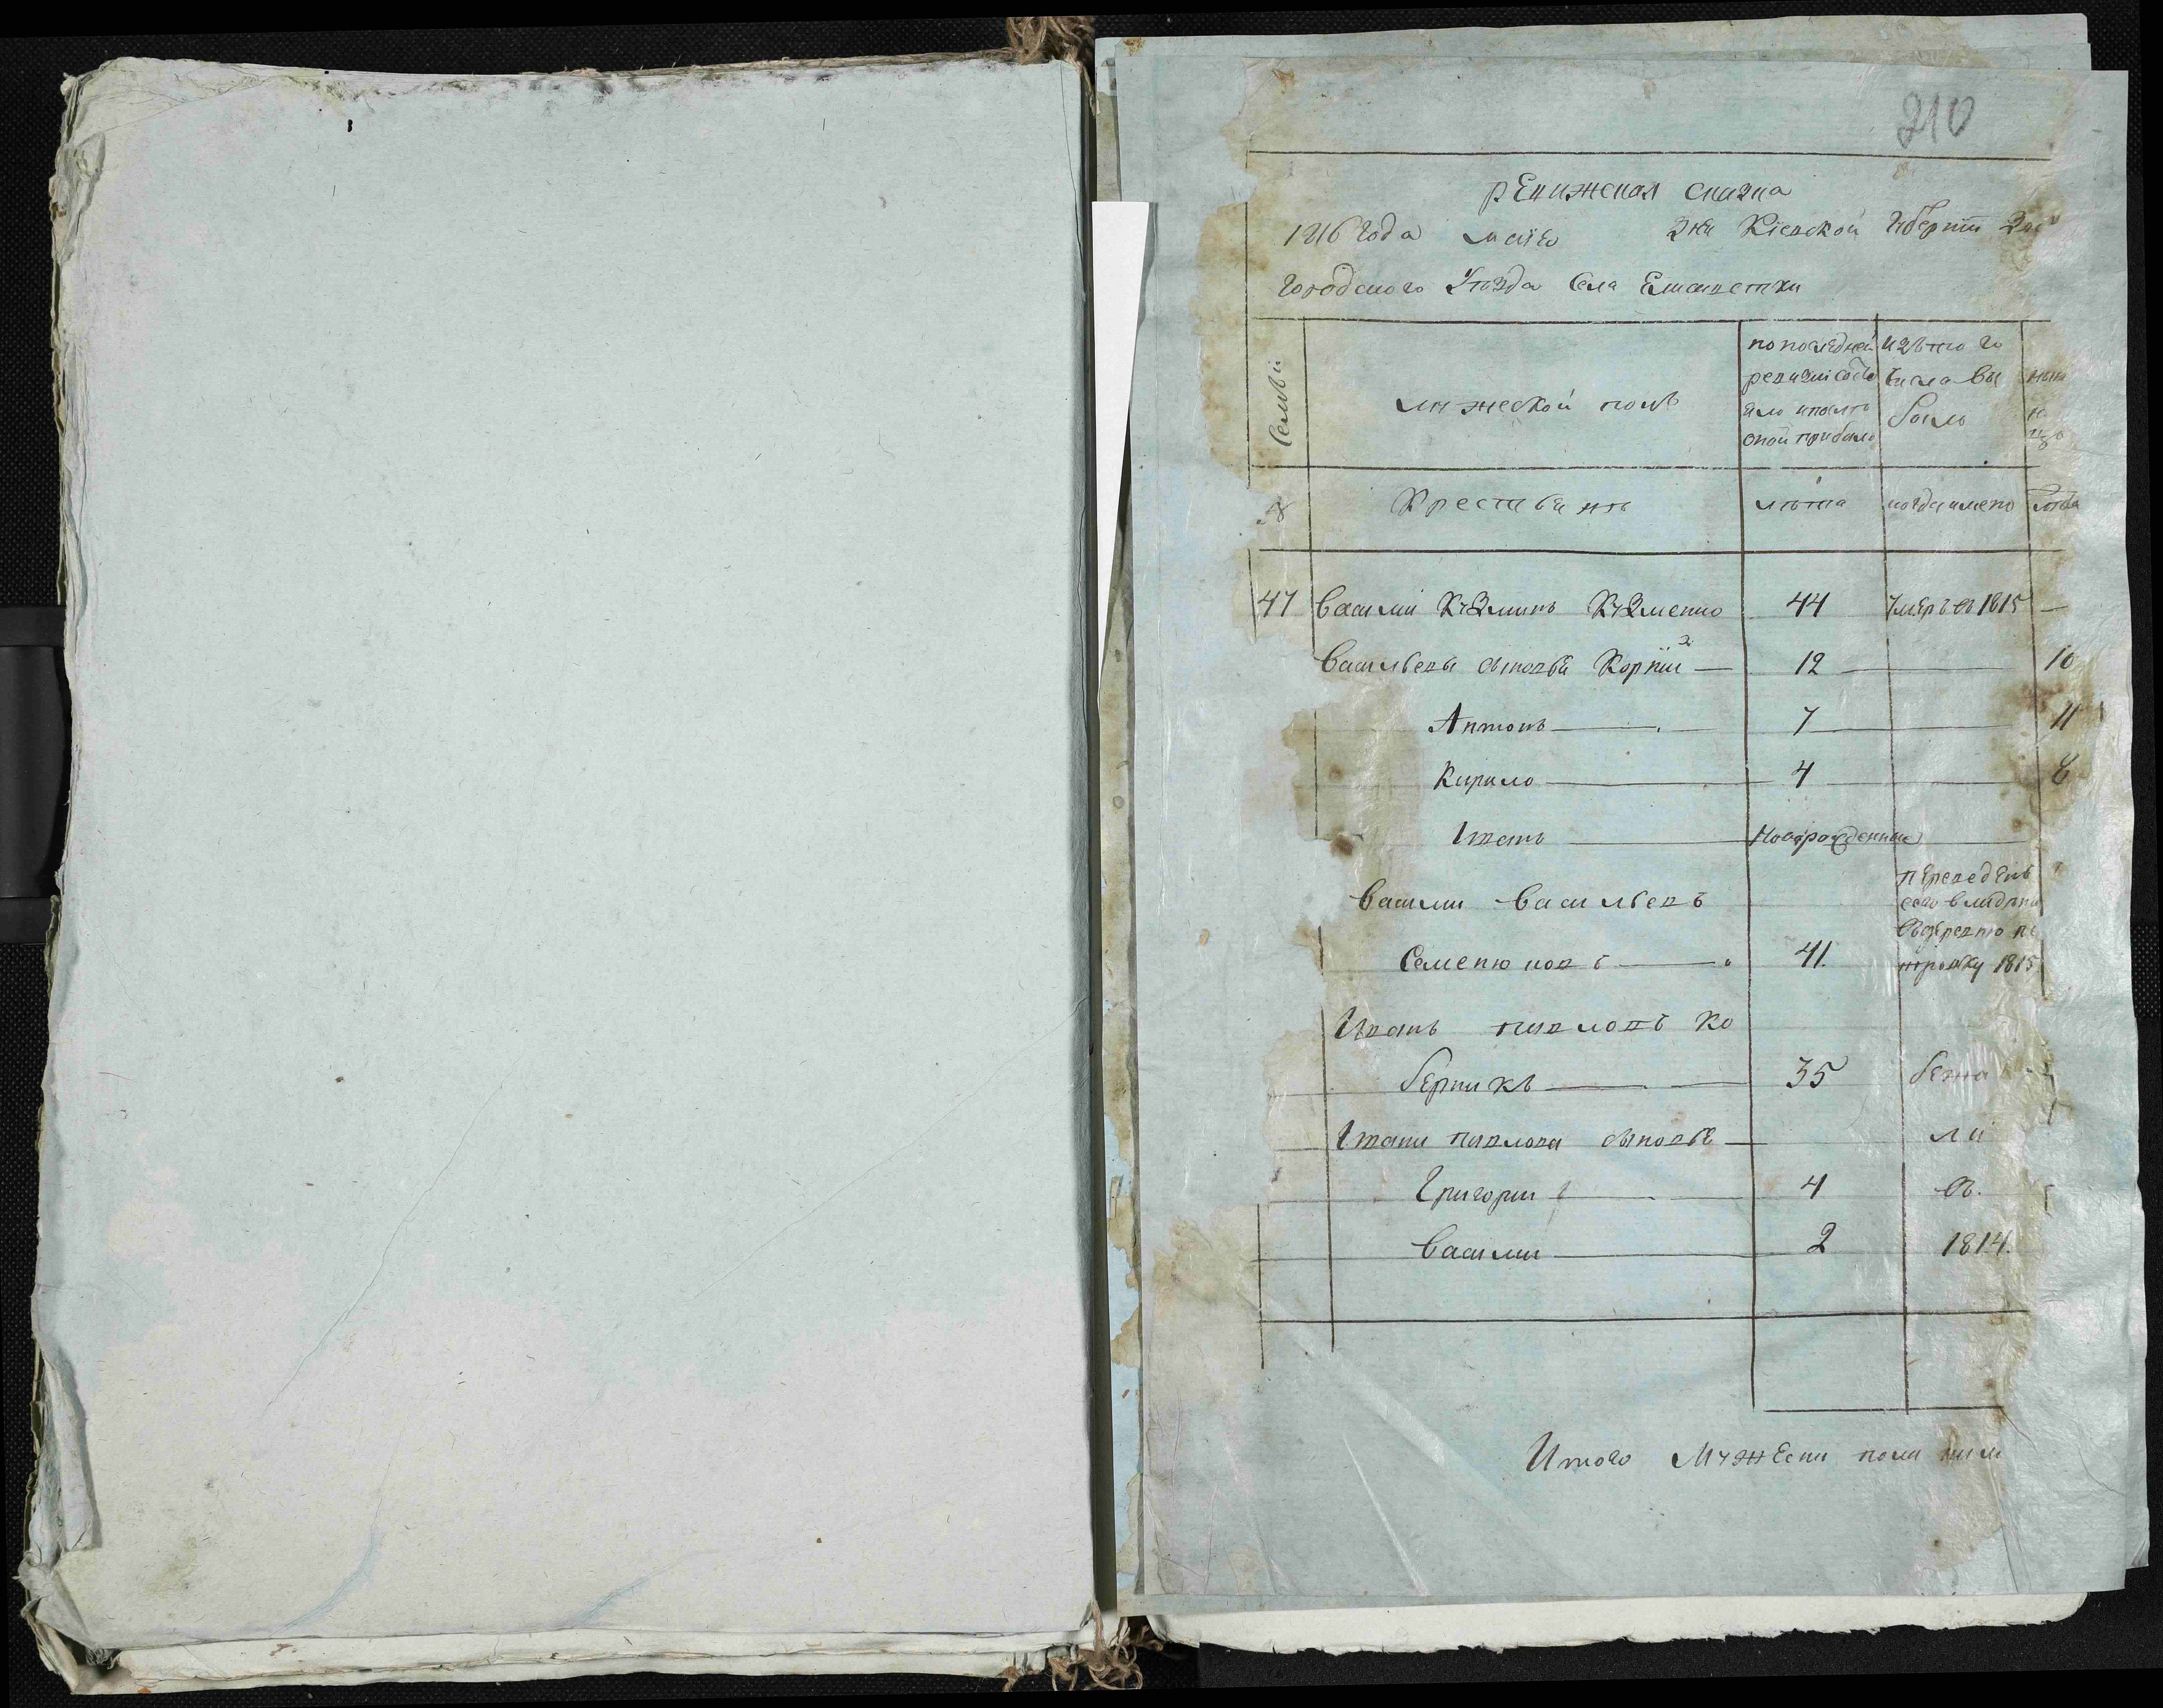 210
ревижская сказка
1816 года маїя дня Кіевской Губернїи Зве
городского Уезда Села Елисаветки
Семьи
мужеской полъ
по последней
ревизии состо
яло и после
оной прибыло
изъ того
числа вы
было
ныне
Крестьянъ
лета
когда имено
лета
47 Василий Кузминъ Кузменко 44 умеръ въ 1815 —
Васильевы сыновья Корнїй 2 12 10
Антонъ 7 11
Кирило 4 8
Иванъ Новорожденны
Василий Васильевъ
Семенюковъ 41.
переведенъ
1815
Иванъ павловъ Ко
берникъ 35 бежа
Ивана павлова сыновья ли
Григории 4 въ.
Василии 2 1814.
Итого Мужеска пола